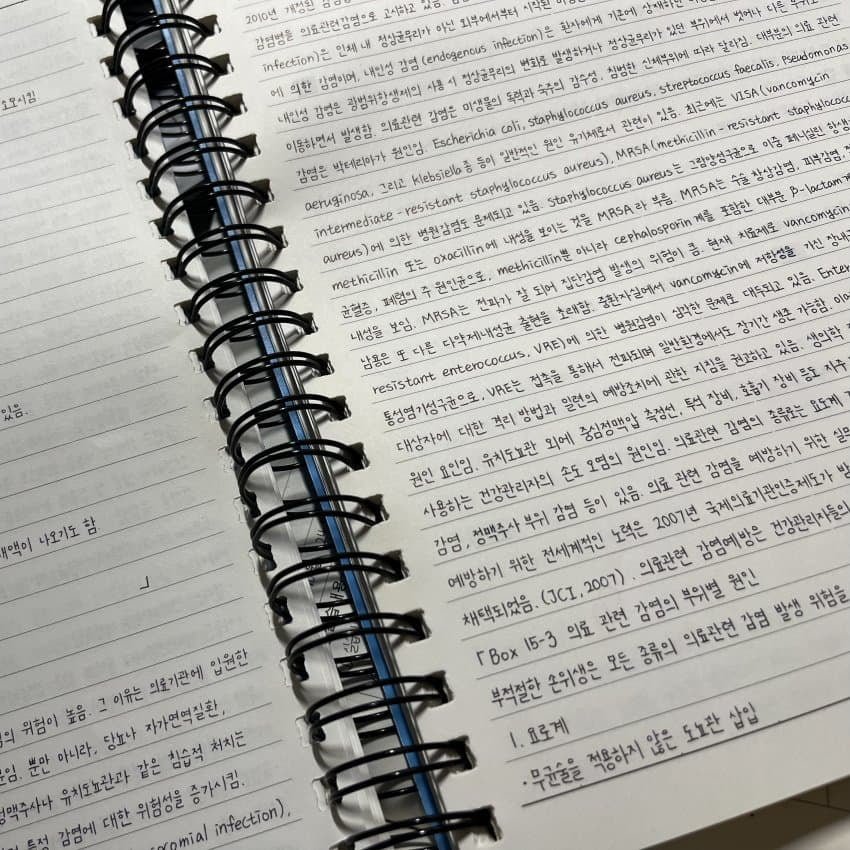 도모시킴
있음.
대액이 나오기도 함.
」
의 위험이 높음. 그 이유는 의료기관에 입원한
뿐만 아니라, 당뇨나 자가면역질환,
정맥주사나 유치도뇨관과 같은 침습적 처치는
특정 감염에 대한 위험성을 증가시킴.
infection),
2010년 개정된
감염병을 의료관련감염으로 고시하고 있음.
infection)은 인체 내 정상균무리가 아닌 외부에서부터 시작된
에 의한 감염이며, 내인성 감염(endogenous infection)은 환자에게 기존에 상재하던
내인성 감염은 광범위항생제의 사용 시 정상균무리의 변화로 발생하거나 정상균무리가 있던 부위에서 벗어나 다른
이동하면서 발생함. 의료관련 감염은 미생물의 독력과 숙주의 감수성, 침범한 신체부위에 따라 달라짐. 대부분의 의료 관련
감염은 박테리아가 원인임. Escherichia coli, staphylococcus aureus, streptococcus faecalis, pseudomonas
aeruginosa, 그리고 Klebsiella종 등이 일반적인 원인 유기체로서 관련이 있음. 최근에는 VISA(vancomycin
intermediate-resistant staphylococcus aureus), MRSA(methicillin-resistant staphylococcus
aureus)에 의한 병원감염도 문제되고 있음. staphylococcus aureus는 그람양성균으로 이중 페니실린
methicillin 또는 oxacillin에 내성을 보이는 것을 MRSA라 부름. MRSA는 수술 창상감염, 피부감염,
균혈증, 폐렴의 주 원인균으로, methicillin뿐 아니라 cephalosporin계를 포함한 대부분 β-lactam계
내성을 보임. MRSA는 전파가 잘 되어 집단감염 발생의 위험이 큼. 현재 치료제로 vancomycin
남용은 또 다른 다약제내성균 출현을 초래함. 중환자실에서 vancomycin에 저항성을 가진 장내
resistant enterococcus, VRE)에 의한 병원감염이 심각한 문제로 대두되고 있음.
통성혐기성구균으로, VRE는 접촉을 통해서 전파되며 일반환경에서도 장기간 생존 가능함.
대상자에 대한 격리 방법과 일련의 예방조치에 관한 지침을 권고하고 있음. 생의학
원인 요인임. 유치도뇨관 외에 중심정맥압 측정선, 투석 장비, 호흡기 장비 등도 자주
사용하는 건강관리자의 손도 오염의 원인임. 의료관련 감염의 종류로는 요도계
감염, 정맥주사 부위 감염 등이 있음. 의료 관련 감염을 예방하기 위한
예방하기 위한 전세계적인 노력은 2007년 국제의료기관인증제도가
채택되었음.(JCI,2007). 의료관련 감염예방은 건강관리자들의
「Box 15-3 의료 관련 감염의 부위별 원인
부적절한 손위생은 모든 종류의 의료관련 감염 발생 위험을
1. 요로계
·무균술을 적용하지 않은 도뇨관 삽입